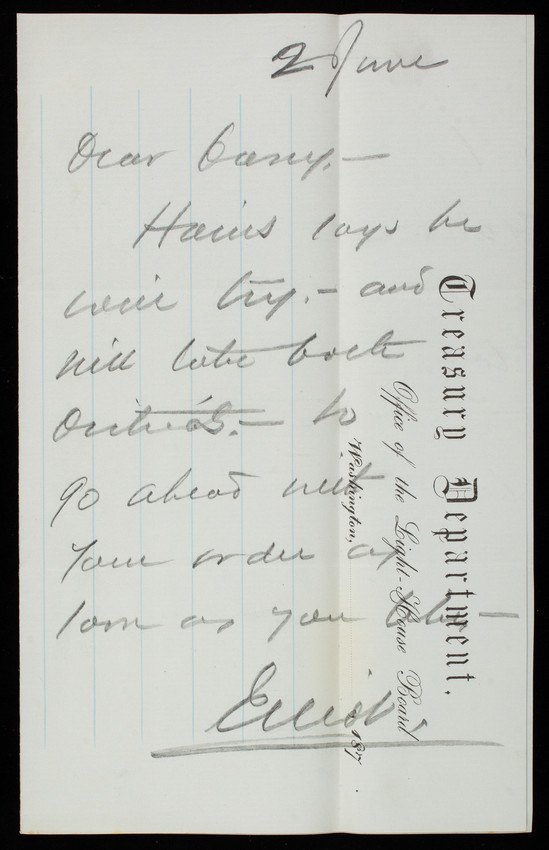 2 June
Dear Casey. —
Hains says he
will try. — and
will take both
Districts. — So
go ahead with
your order as
soon as you like —
Elliot.
Treasury Department.
Office of the Light-House Board
Washington,
187 .